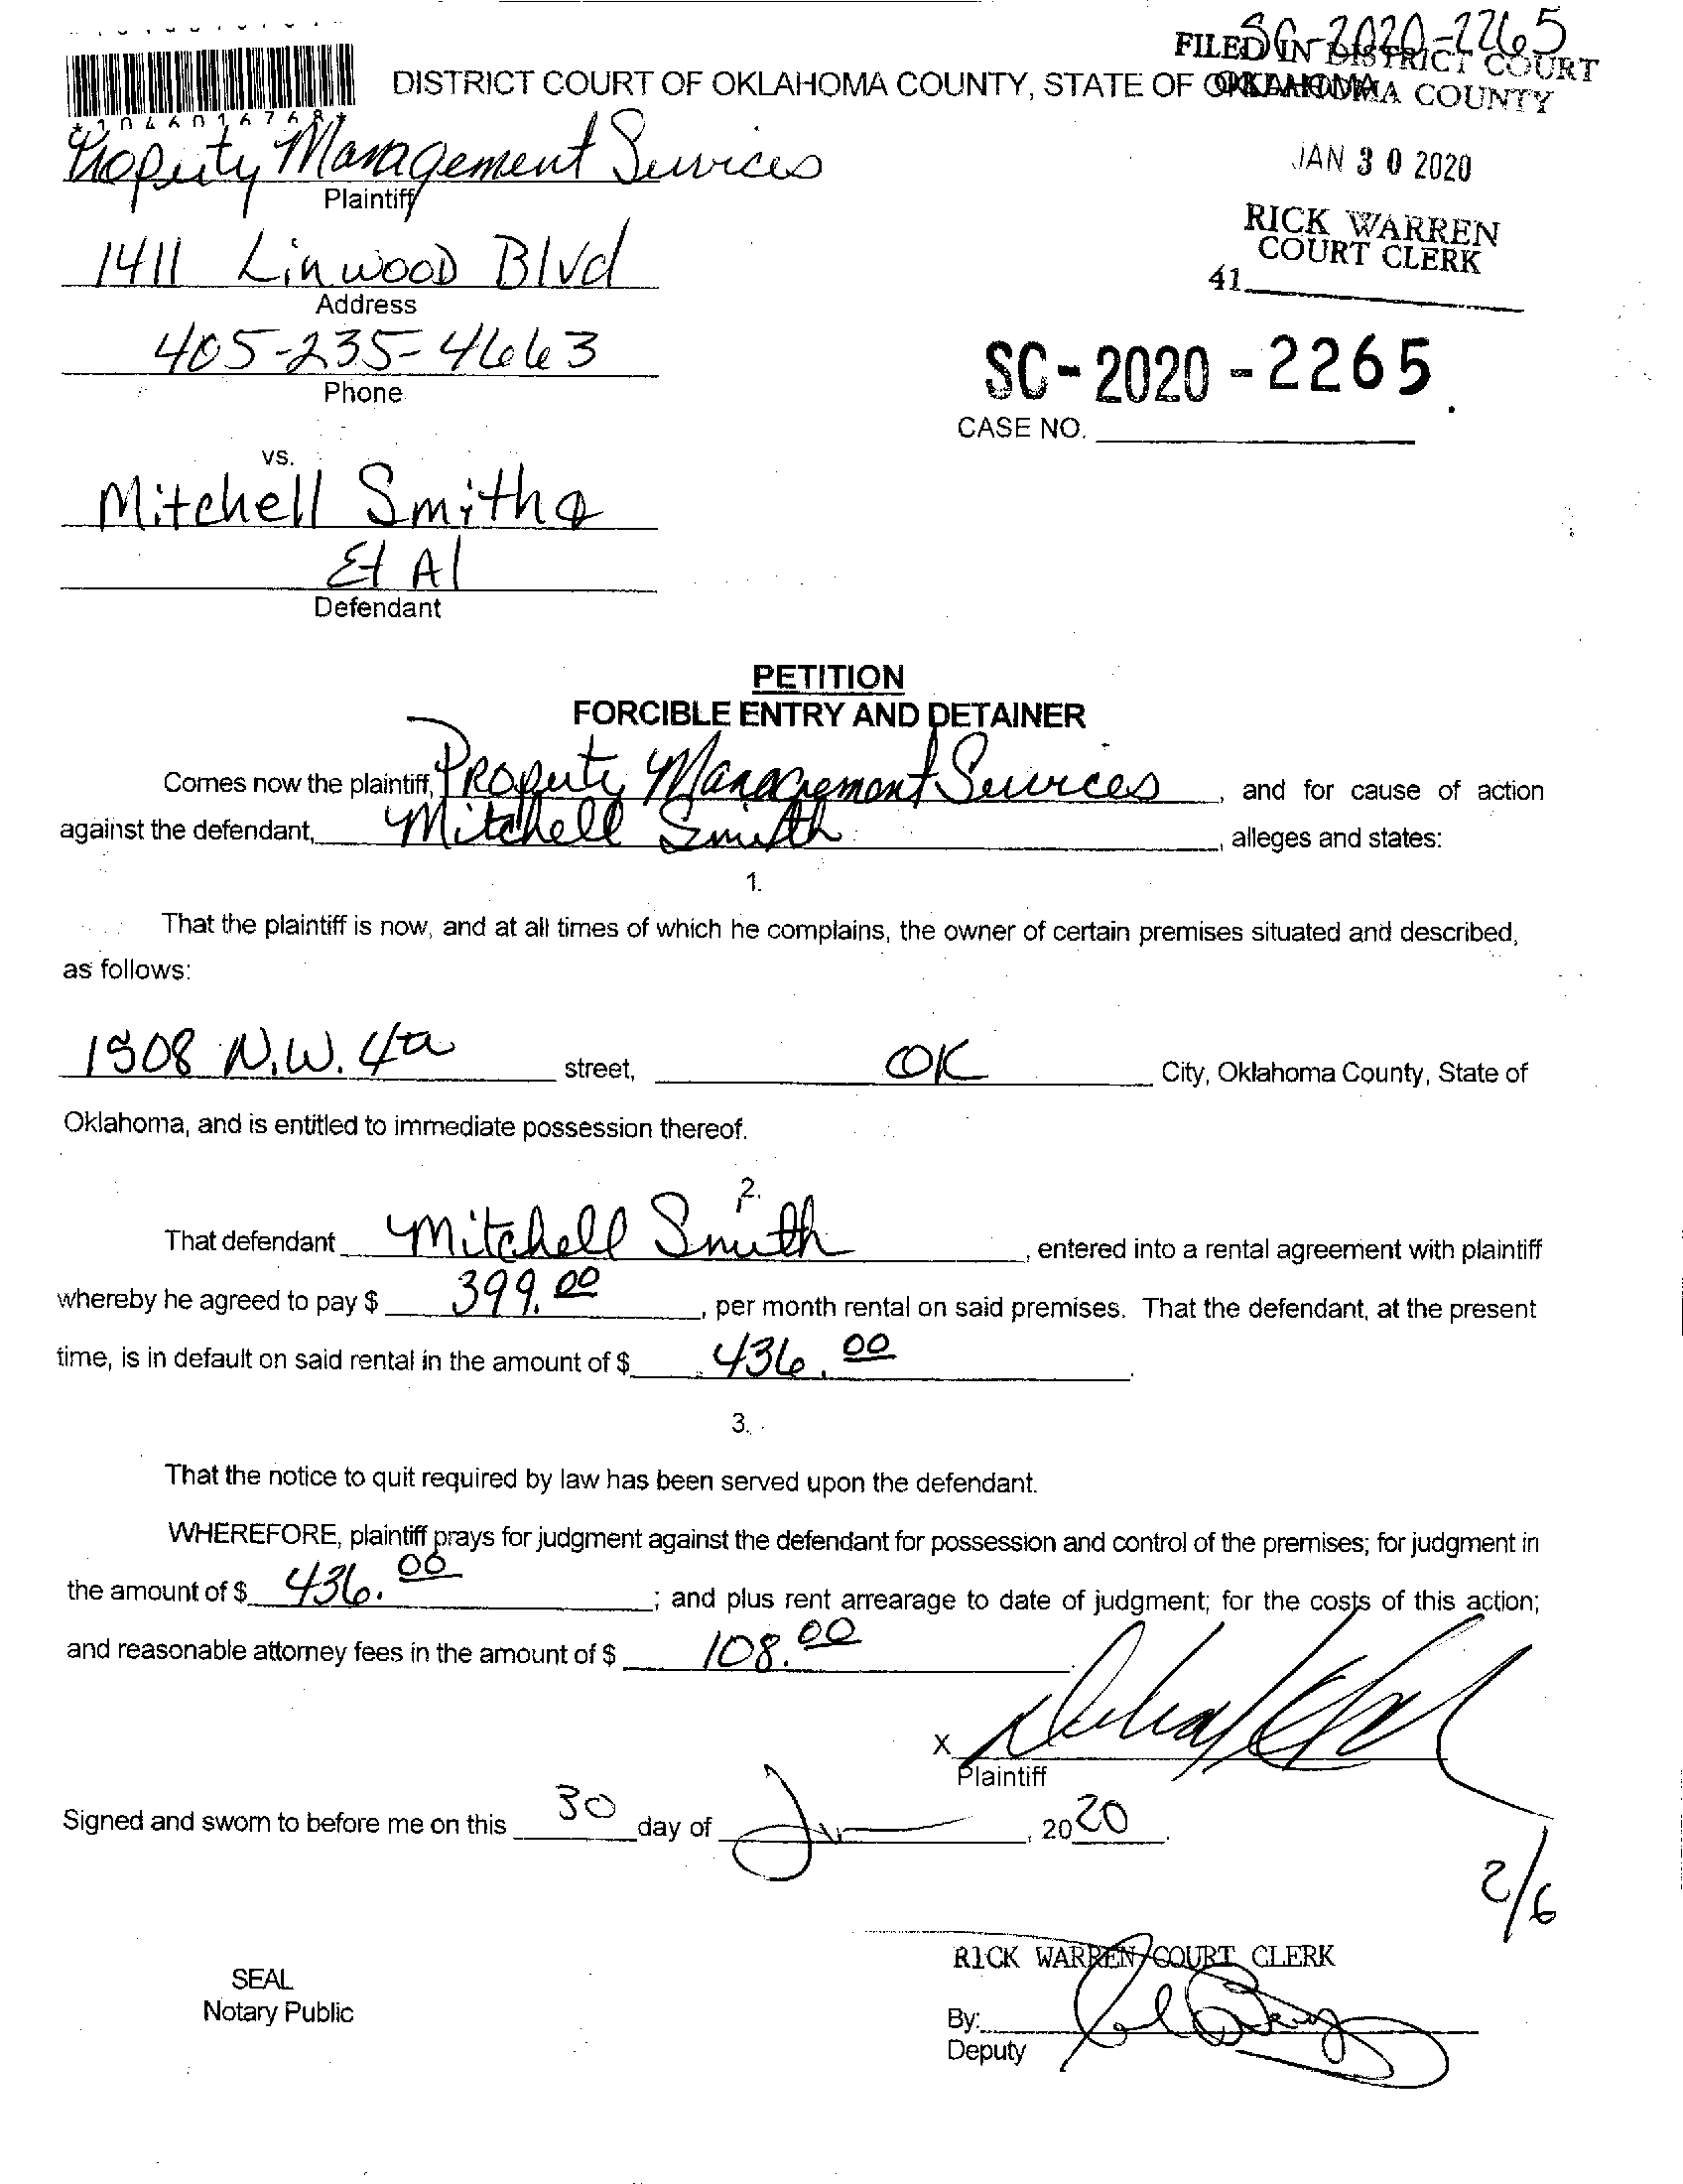 SC-2020-2265
FILED IN DISTRICT COURT
DISTRICT COURT OF OKLAHOMA COUNTY, STATE OF OKLAHOMA
OKLAHOMA COUNTY
*1046016768*
Property Management Services
Plaintiff
JAN 30 2020
RICK WARREN
COURT CLERK
41
1411 Linwood Blvd
Address
405-235-4663
Phone
SC-2020-2265
CASE NO.
vs.
Mitchell Smith &
Et Al
Defendant
PETITION
FORCIBLE ENTRY AND DETAINER
Comes now the plaintiff, Property Management Services, and for cause of action
against the defendant, Mitchell Smith, alleges and states:
1.
That the plaintiff is now, and at all times of which he complains, the owner of certain premises situated and described,
as follows:
1908 N.W. 4th street, OK City, Oklahoma County, State of
Oklahoma, and is entitled to immediate possession thereof.
2.
That defendant Mitchell Smith, entered into a rental agreement with plaintiff
whereby he agreed to pay $ 399.00, per month rental on said premises. That the defendant, at the present
time, is in default on said rental in the amount of $ 436.00.
3.
That the notice to quit required by law has been served upon the defendant.
WHEREFORE, plaintiff prays for judgment against the defendant for possession and control of the premises; for judgment in
the amount of $ 436.00; and plus rent arrearage to date of judgment; for the costs of this action;
and reasonable attorney fees in the amount of $ 108.00
X
Plaintiff
Signed and sworn to before me on this 30 day of Jan, 2020.
2/6
RICK WARREN, COURT CLERK
SEAL
Notary Public
By:
Deputy